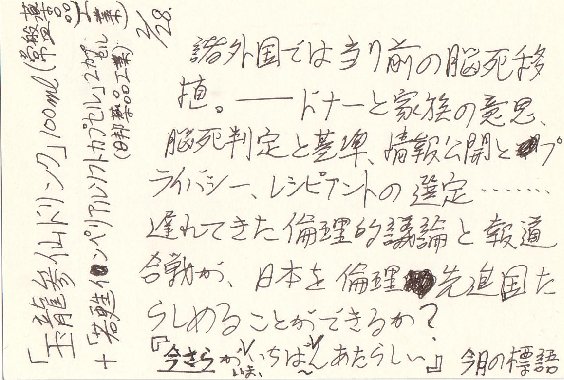 「玉龍参仙ドリンク」100ml(常盤薬品工業)
+「若甦インペリアルソフトカプセル」2カプセル
(日邦薬品工業)
2/28.
諸外国では当り前の脳死移
植。――ドナーと家族の意思、
脳死判定と基準、情報公開とプ
ライバシー、レシピアントの選定………
遅れてきた倫理的議論と報道
合戦が、日本を倫理先進国た
らしめることができるか?
『今さらがいちばんあたらしい。』今月の標語
いま、